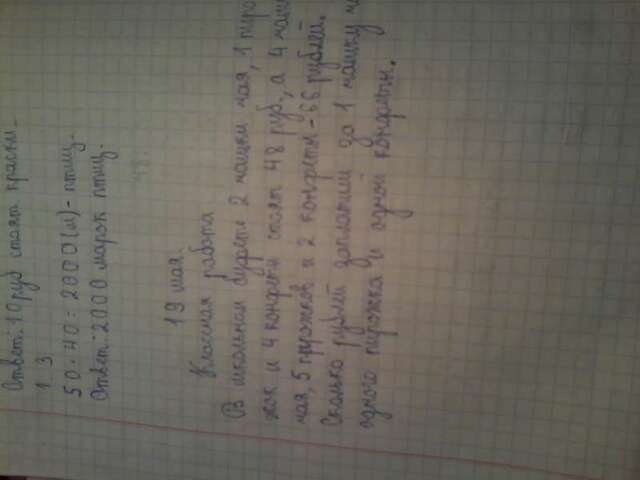 Ответ: 10 руб стоят краски.
1 3
50 · 40 = 2000 (м) - птиц.
Ответ: 2000 марок птиц.
19 мая.
Классная работа
В школьном буфете 2 чашки чая, 1 пиро
жок и 4 конфеты стоят 48 руб., а 4 чашк
чая, 5 пирожков и 2 конфеты - 66 рублей.
Сколько рублей заплатили за 1 чашку ч
одного пирожка и одной конфеты.